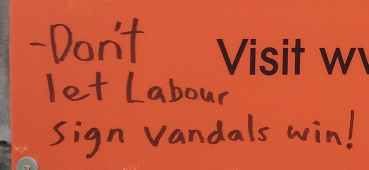 -Don't
let Labour
sign vandals win!
Visit